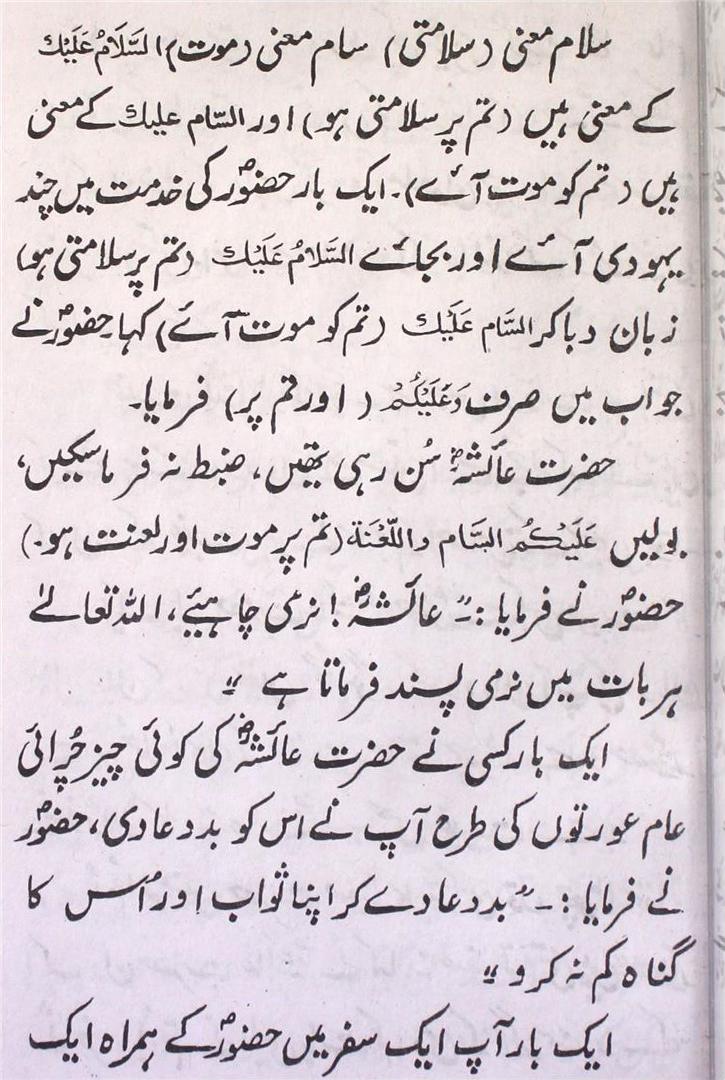 سلام معنی (سلامتی) سام معنی (موت) السَّلَامُ عَلَیْك
کے معنی ہیں (تم پر سلامتی ہو) اور السّام علیك کے معنی
ہیں (تم کو موت آئے)۔ ایک بار حضورؐ کی خدمت میں چند
یہودی آئے اور بجائے السَّلَامُ عَلَیْك (تم پر سلامتی ہو)
زبان دبا کر السَّام عَلَیْك (تم کو موت آئے) کہا۔ حضورؐ نے
جواب میں صرف وَعَلَیْکُمْ (اور تم پر) فرمایا۔
حضرت عائشہؓ سُن رہی تھیں، ضبط نہ فرما سکیں،
بولیں عَلَیْکُمُ السَّام واللَّعْنَة (تم پر موت اور لعنت ہو۔)
حضورؐ نے فرمایا :۔ ”عائشہؓ! نرمی چاہیئے، اللہ تعالےٰ
ہر بات میں نرمی پسند فرماتا ہے “
ایک بار کسی نے حضرت عائشہؓ کی کوئی چیز چُرائی
عام عورتوں کی طرح آپ نے اس کو بددعا دی، حضورؐ
نے فرمایا :۔ ”بددعا دے کر اپنا ثواب اور اُس کا
گناہ کم نہ کرو “
ایک بار آپ ایک سفر میں حضورؐ کے ہمراہ ایک